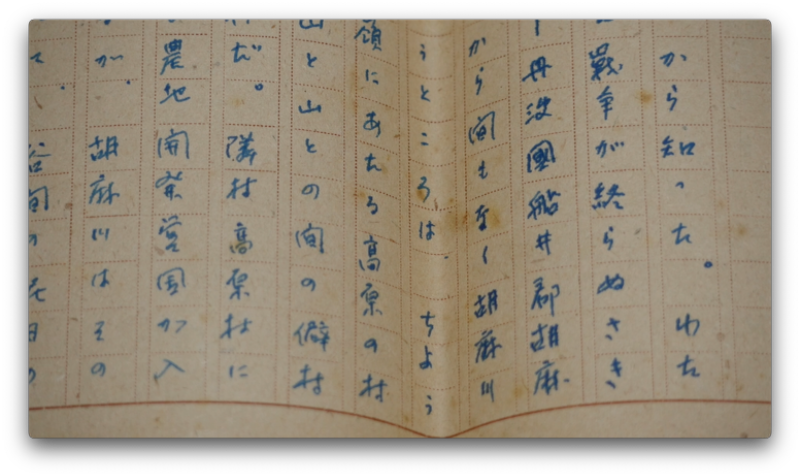 から知った。わた
戦争が終らぬさき
丹波國船井郡胡麻
から間もなく胡麻川
うところは、ちよう
嶺にあたる高原の村
山と山との間の僻村
だ。隣村高原村に
農地開発営団が入
が、胡麻川はその
谷間の